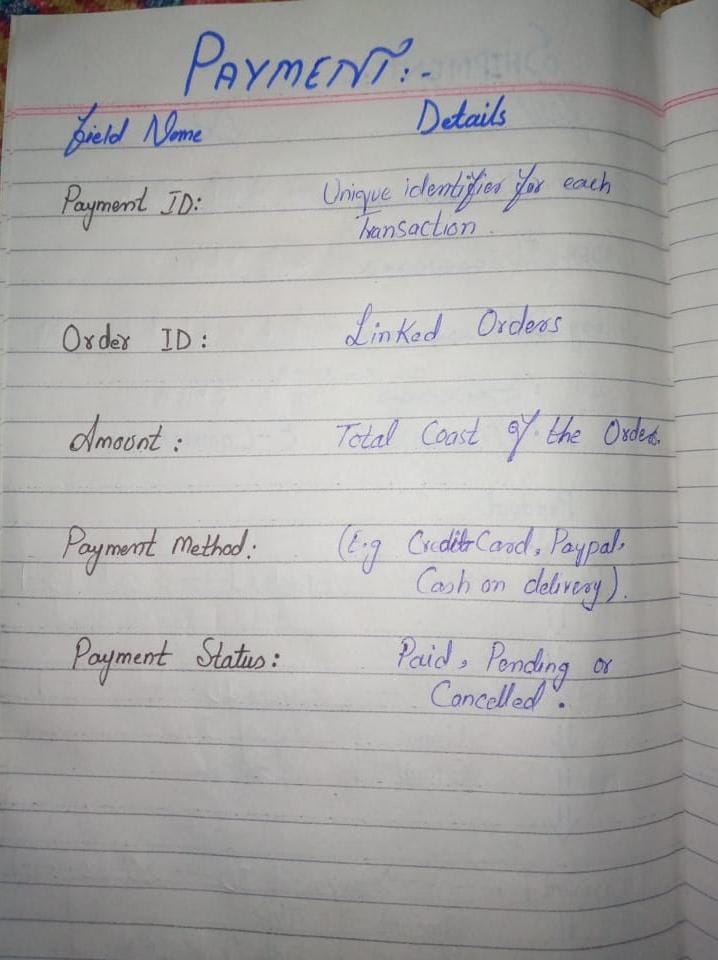 PAYMENT:-
Field Name Details
Payment ID: Unique identifier for each
Transaction.
Order ID: Linked Orders
Amount: Total Coast of the Order.
Payment Method: (E.g Credit Card, Paypal,
Cash on delivery).
Payment Status: Paid, Pending or
Cancelled.